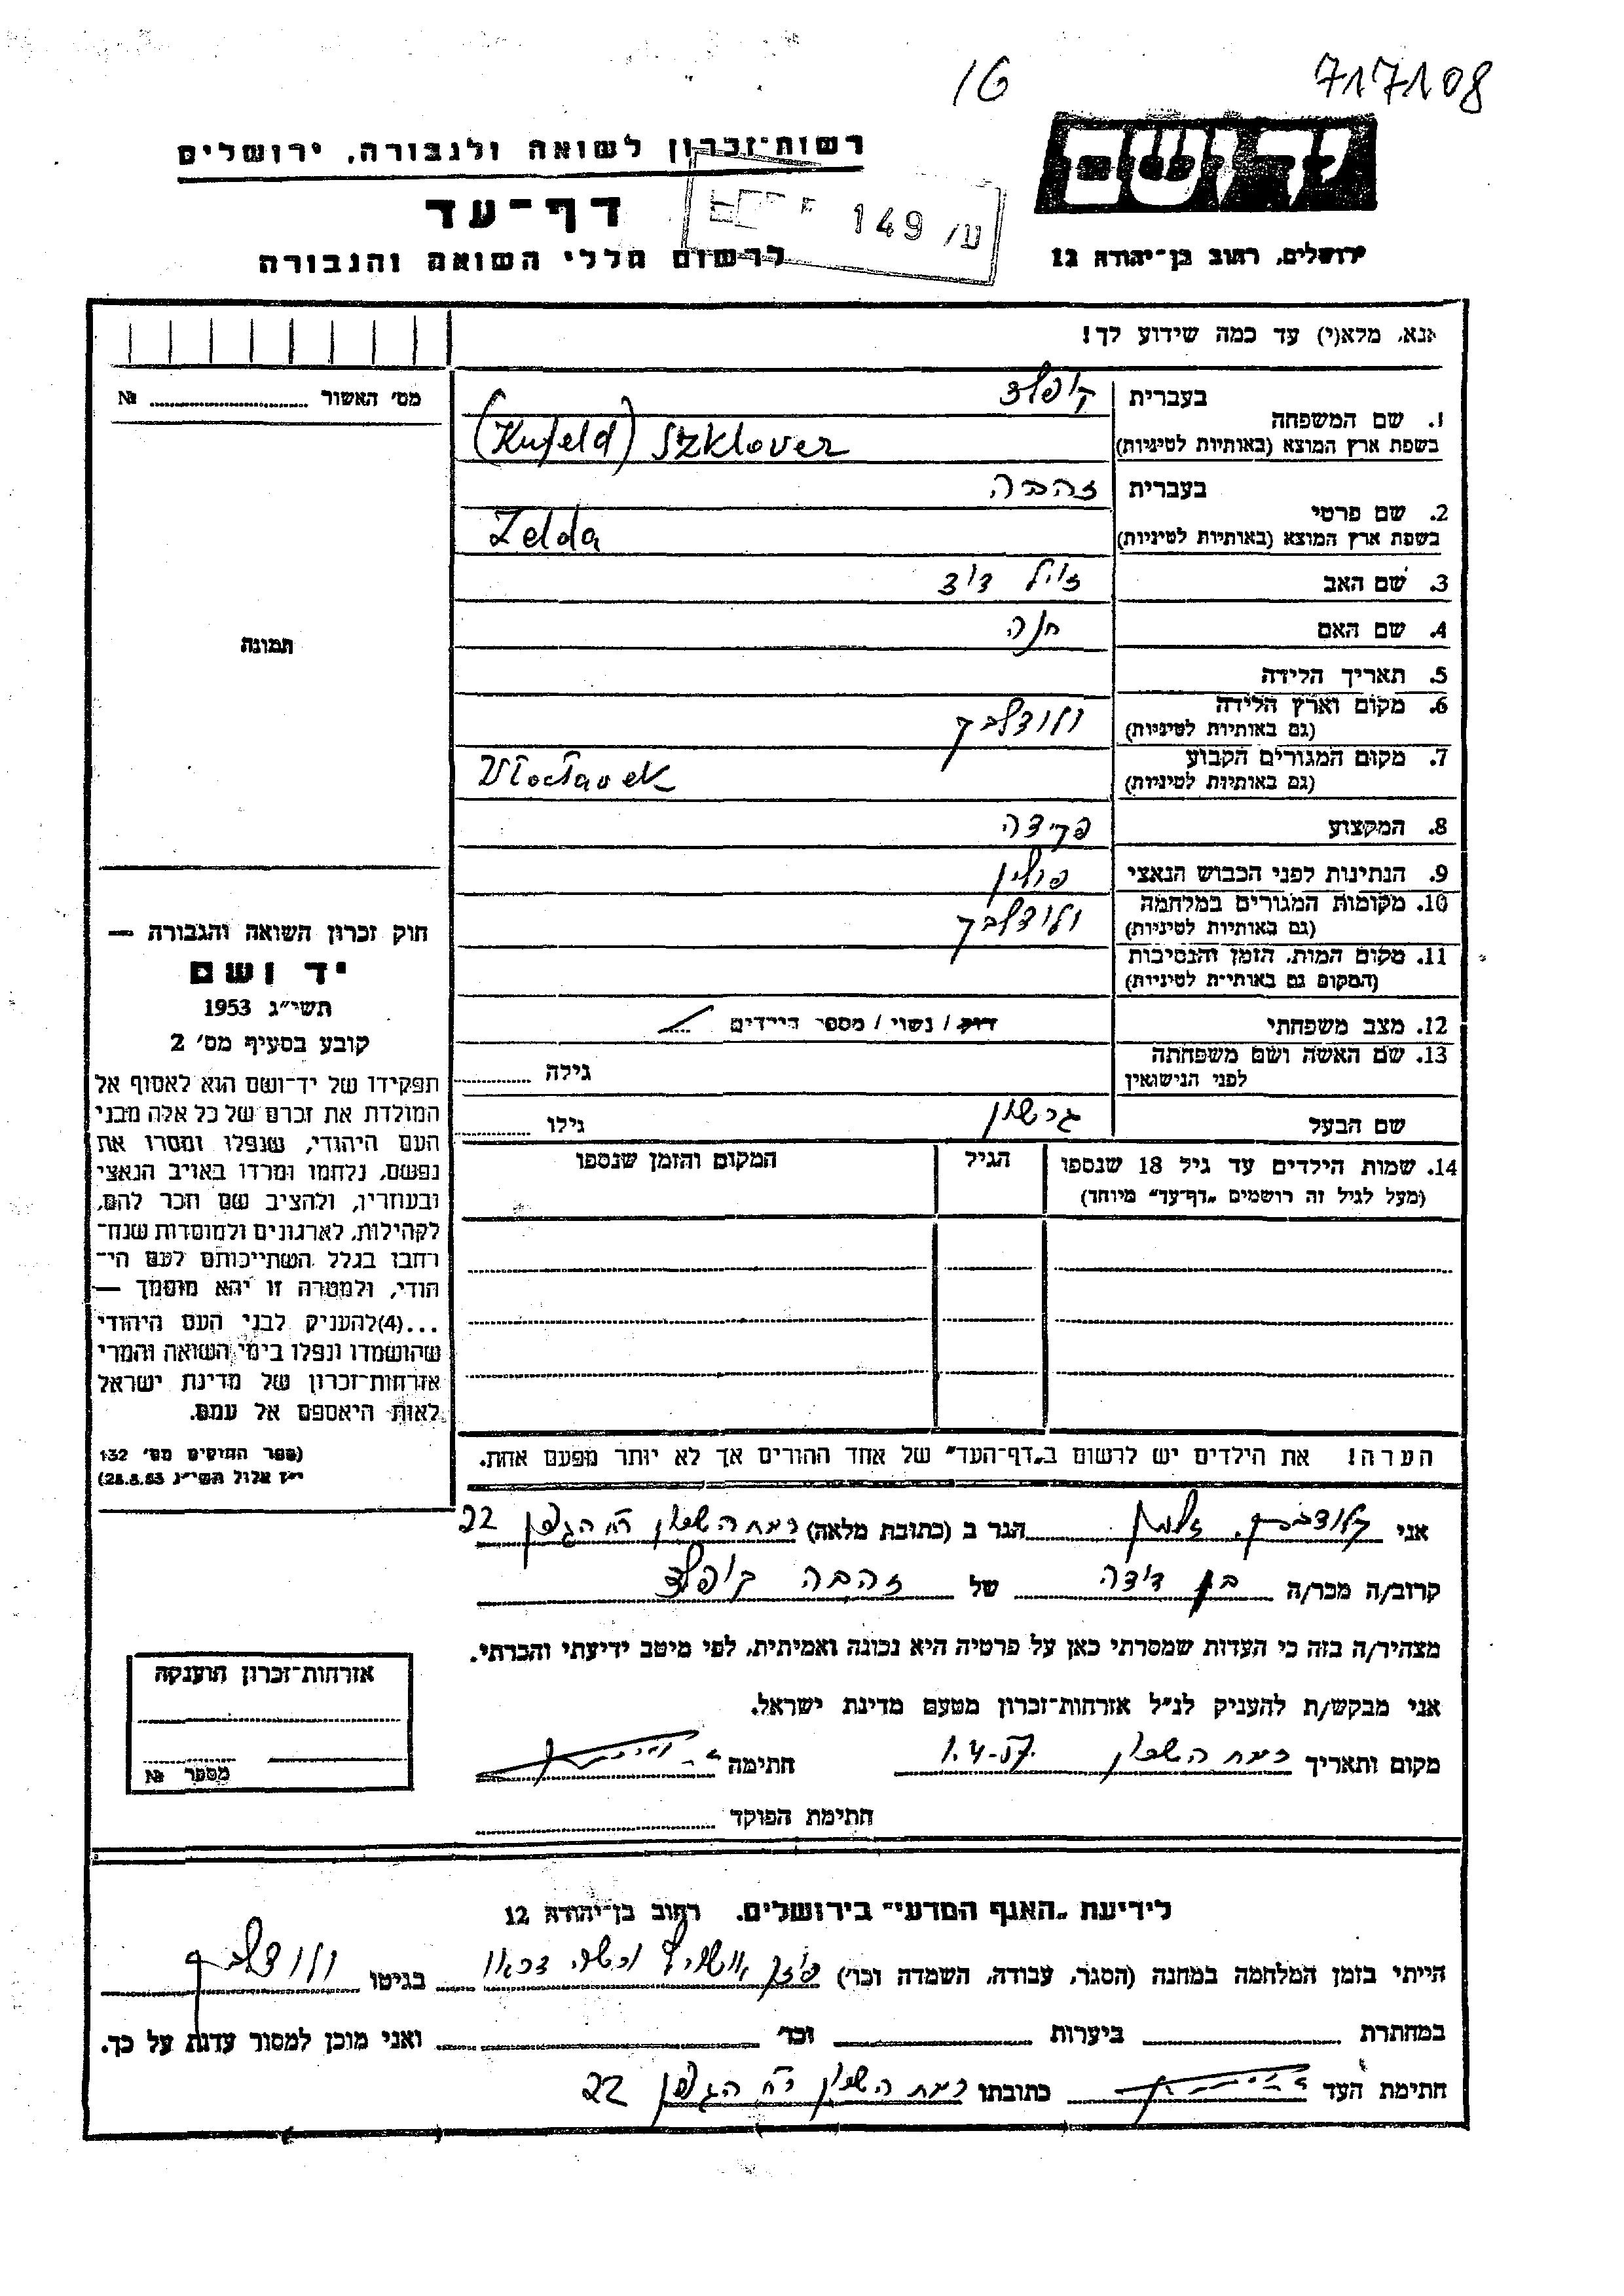 16
717108
רשות־זכרון לשואה ולגבורה, ירושלים
יד ושם
דף־עד
149 /ע
לרשום חללי השואה והגבורה
ירושלים, רחוב בן־יהודה 12
אנא, מלא(י) עד כמה שידוע לך!
מס' האשור № 
1. שם המשפחה
בעברית קופלד
בשפת ארץ המוצא (באותיות לטיניות) (Kufeld) Szklover
2. שם פרטי
בעברית זהבה
בשפת ארץ המוצא (באותיות לטיניות) Zelda
3. שם האב דוד
4. שם האם חנה
תמונה
5. תאריך הלידה
6. מקום וארץ הלידה ולוצלבק
(גם באותיות לטיניות)
7. מקום המגורים הקבוע
(גם באותיות לטיניות) Vloclavek
8. המקצוע פקידה
9. הנתינות לפני הכבוש הנאצי פולין
10. מקומות המגורים במלחמה ולוצלבק
(גם באותיות לטיניות)
11. מקום המות, הזמן והנסיבות
(המקום גם באותיות לטיניות)
12. מצב משפחתי רווק / נשוי / מספר הילדים
13. שם האשה ושם משפחתה
לפני הנישואין
גילה
שם הבעל גרשון
גילו
14. שמות הילדים עד גיל 18 שנספו
(מעל לגיל זה רושמים „דף־עד" מיוחד)
הגיל
המקום והזמן שנספו
חוק זכרון השואה והגבורה —
יד ושם
תשי"ג 1953
קובע בסעיף מס' 2
תפקידו של יד־ושם הוא לאסוף אל
המולדת את זכרם של כל אלה מבני
העם היהודי, שנפלו ומסרו את
נפשם, נלחמו ומרדו באויב הנאצי
ובעוזריו, ולהציב שם וזכר להם,
לקהילות, לארגונים ולמוסדות שנח־
רבו בגלל השתייכותם לעם הי־
הודי, ולמטרה זו יהא מוסמך —
...(4)להעניק לבני העם היהודי
שהושמדו ונפלו בימי השואה והמרי
אזרחות־זכרון של מדינת ישראל
לאות היאספם אל עמם.
(ספר החוקים מס' 132
י"ז אלול תשי"ג 28.8.53)
הערה! את הילדים יש לרשום ב„דף־העד" של אחד ההורים אך לא יותר מפעם אחת.
אני זלמן הגר ב (כתובת מלאה) רמת השרון רח' הגפן 22
קרוב/ה מכר/ה בן דודה של זהבה קופלד
מצהיר/ה בזה כי העדות שמסרתי כאן על פרטיה היא נכונה ואמיתית, לפי מיטב ידיעתי והכרתי.
אני מבקש/ת להעניק לנ"ל אזרחות־זכרון מטעם מדינת ישראל.
מקום ותאריך רמת השרון 1.4-57. חתימה
חתימת הפוקד
אזרחות־זכרון הוענקה
מספר №
לידיעת „האגף המדעי" בירושלים, רחוב בן־יהודה 12
הייתי בזמן המלחמה במחנה (הסגר, עבודה, השמדה וכו') פוזן אושויץ דכאו בגיטו ולוצלבק
במחתרת ביערות וכו' ואני מוכן למסור עדות על כך.
חתימת העד כתובתו רמת השרון רח' הגפן 22